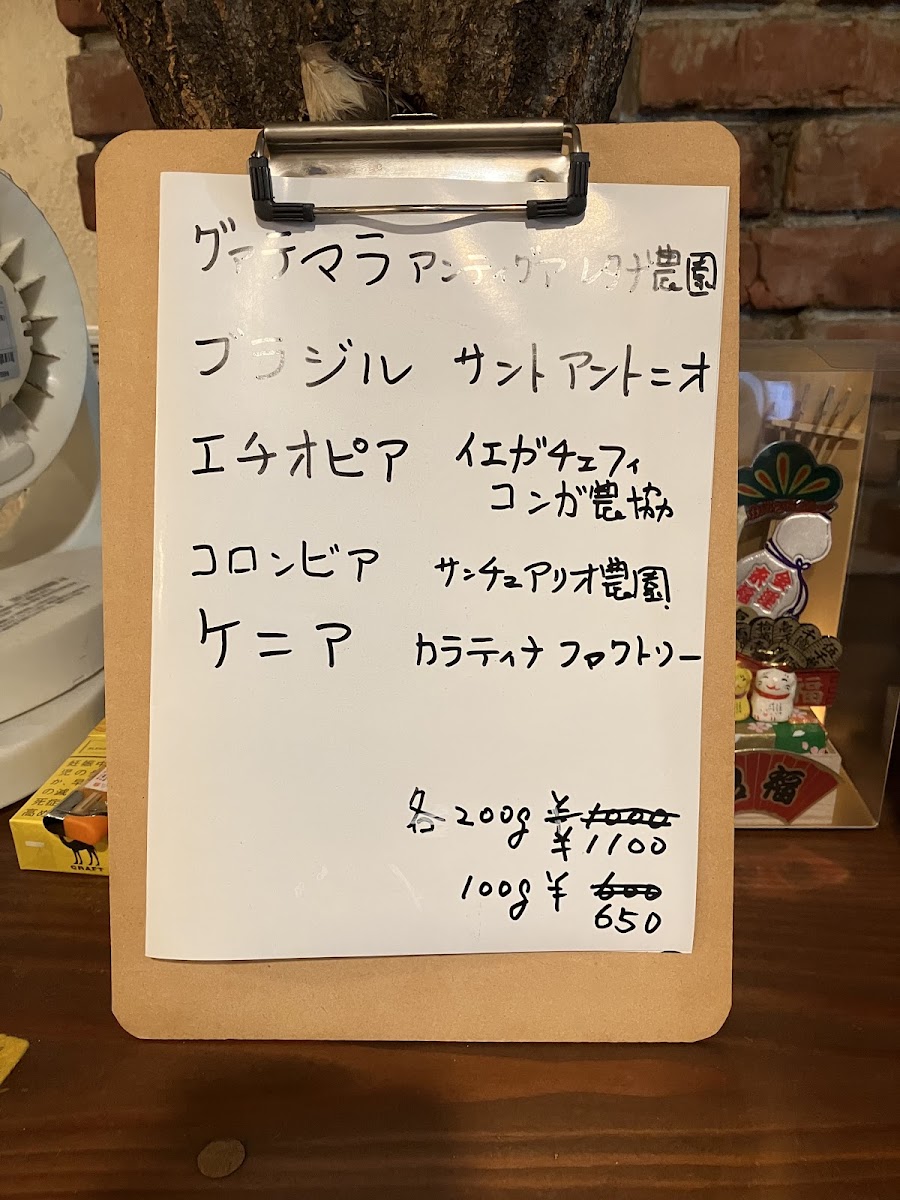 グァテマラ アンティグア レタナ農園
ブラジル サントアントニオ
エチオピア イエガチェフィ
コンガ農協
コロンビア サンチュアリオ農園
ケニア カラティナ ファクトリー
各 200g ¥ 1000
¥ 1100
100g ¥ 600
650
CRAFT
福